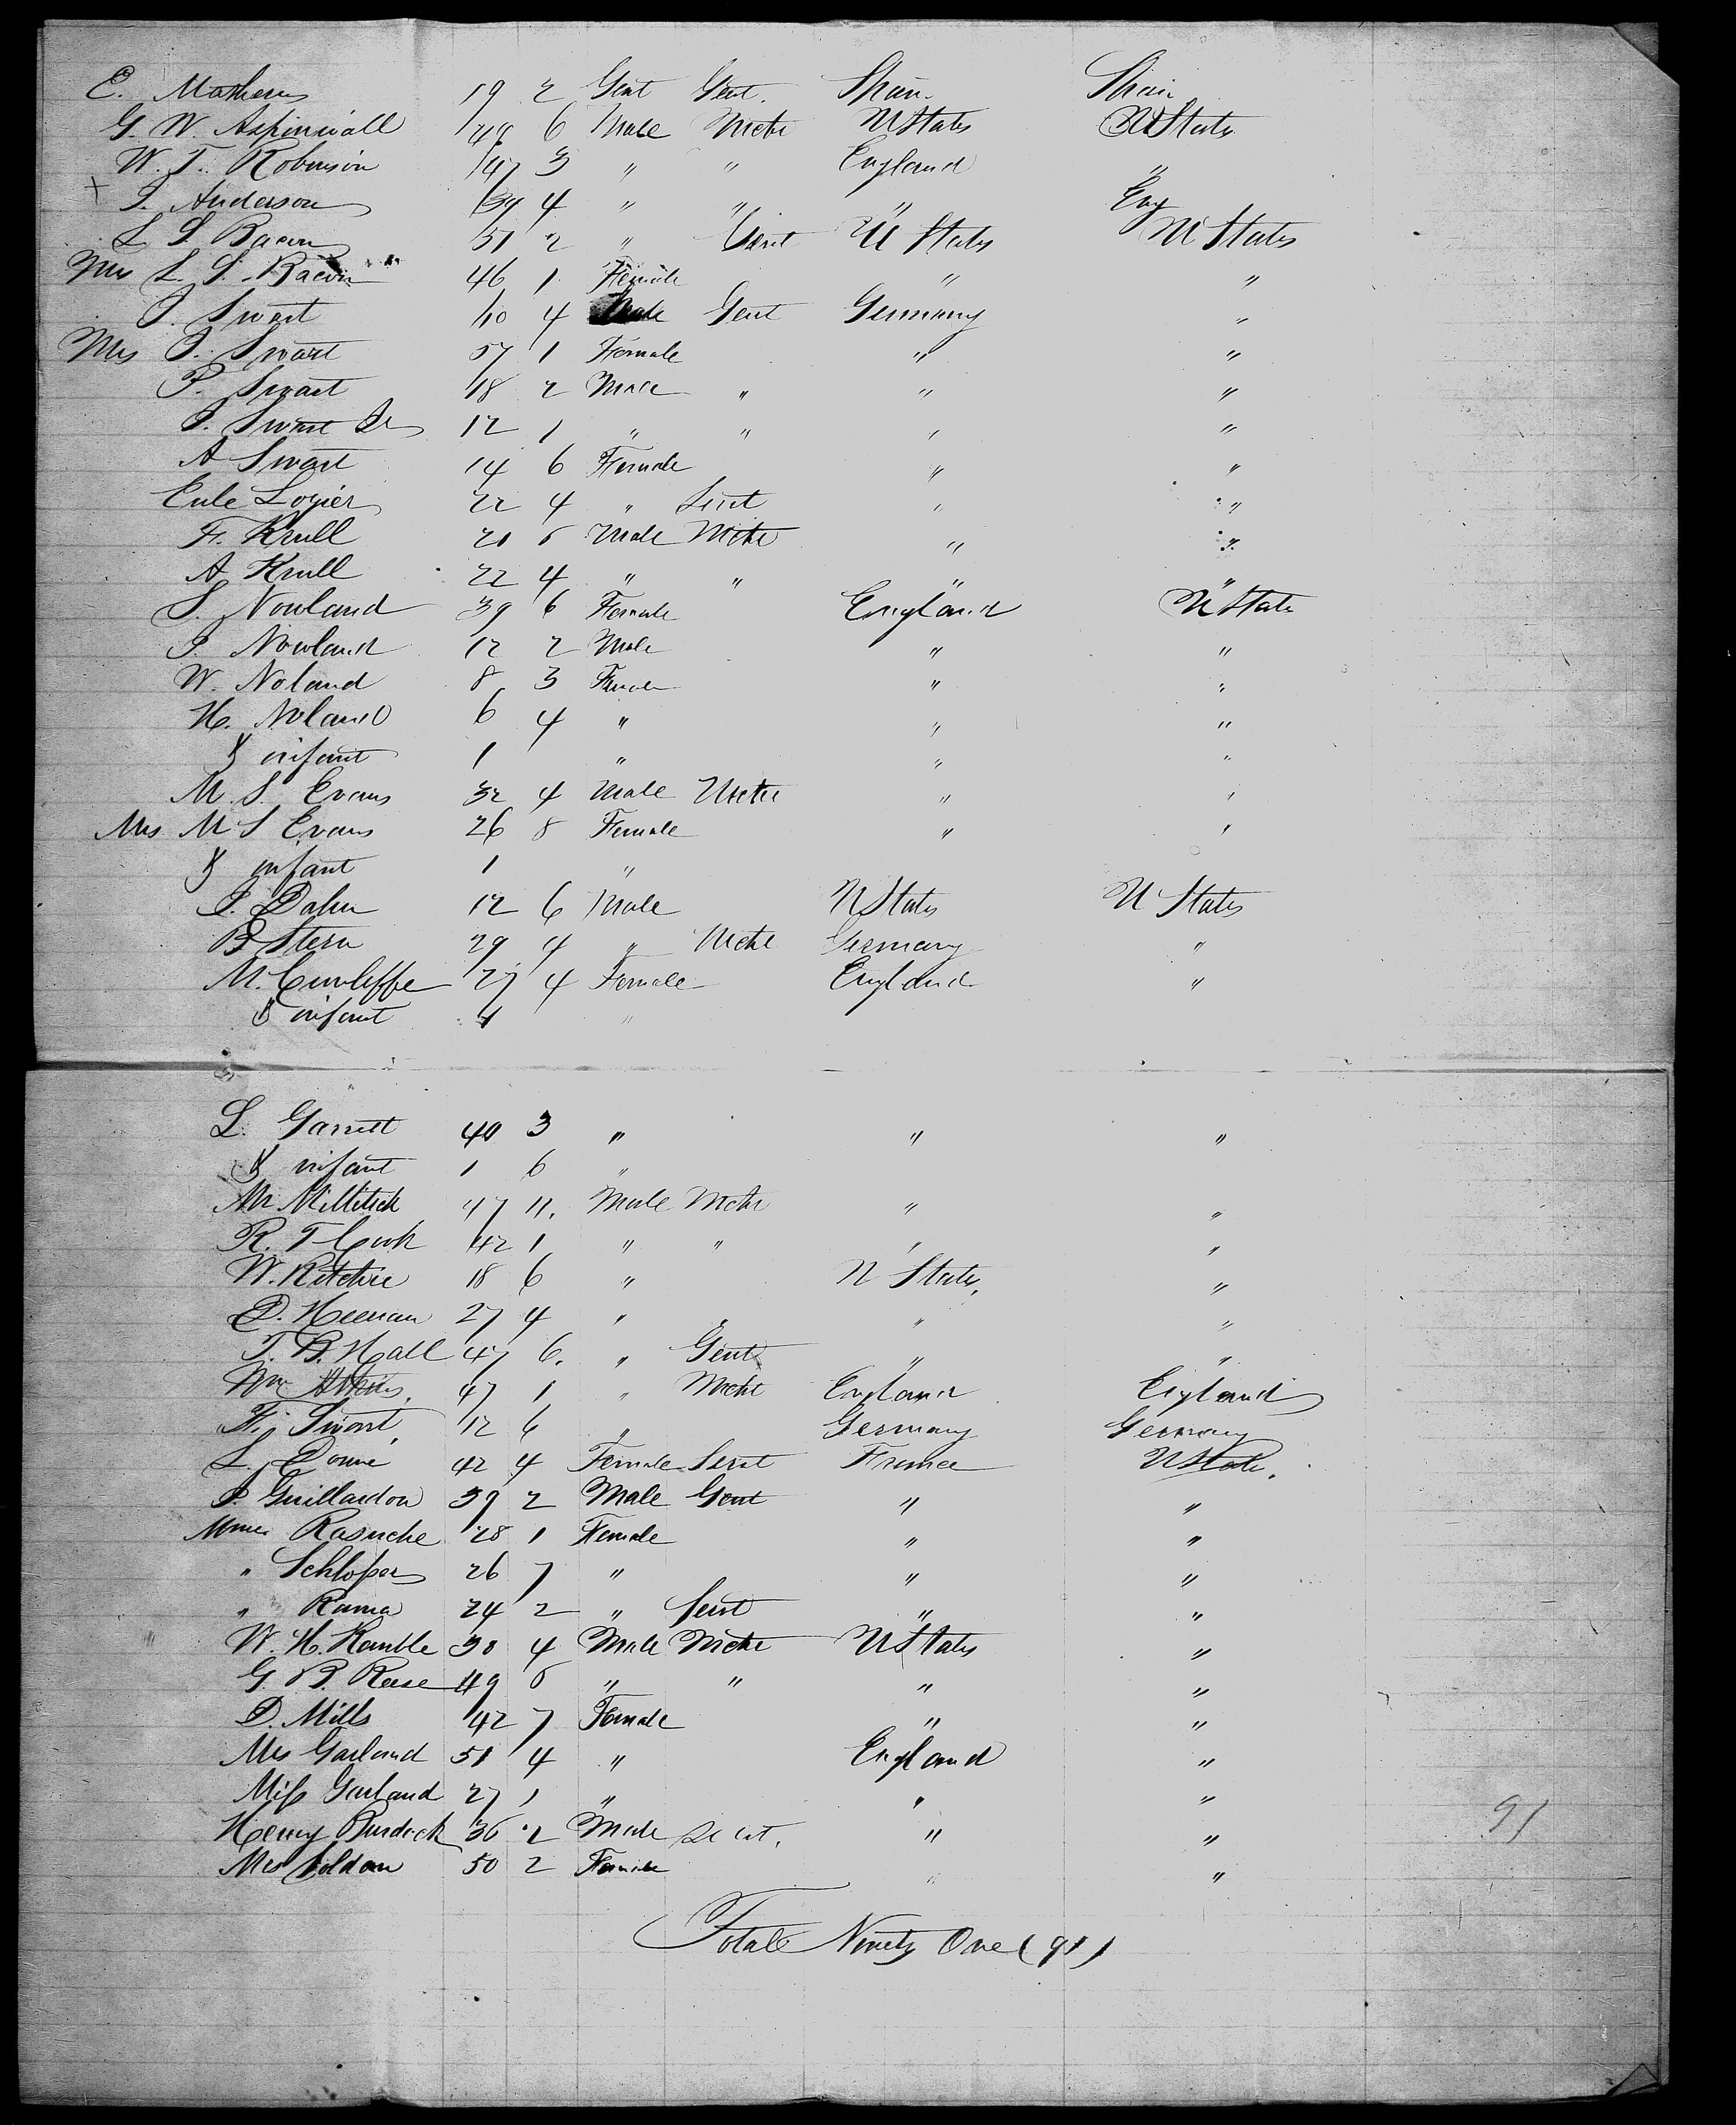 E. Mathews 19 2 Gent Gent. Spain Spain
G. W. Aspinwall 48 6 Male Mcht U States U States
W. T. Robinson 47 3 " " England "
+ J. Anderson 39 4 " " " Eng
L S. Bacon 51 2 " Gent U States U States
Mrs L. S. Bacon 46 1 Female " "
J. Swart 60 4 Male Gent Germany "
Mrs J. Swart 57 1 Female " "
P. Swart 18 2 Male " " "
J. Swart Jr 12 1 " " " "
A Swart 14 6 Female " "
Eule Lozier 22 4 " Servt " "
F. Krull 20 6 Male Mcht " "
A Krull 22 4 " " " "
S. Nowland 39 6 Female England U State
J. Nowland 12 2 Male " "
W. Noland 8 3 Female " "
H. Noland 6 4 " " "
& infant 1 " " "
M. S. Evans 32 4 Male Mcht " "
Mrs M S Evans 26 8 Female " "
& infant 1 "
J. Dahn 12 6 Male U States U States
B Stern 29 4 " Mcht Germany "
M. Cunliffe 27 4 Female England "
& infant 1 "
L. Garrett 40 3 " " "
& infant 1 6 "
Mr. Millitich 47 11. Male Mcht " "
R. T Cook 42 1 " " " "
W. Ritchie 18 6 " U States, "
D. Heenan 27 4 " " "
T. B. Hall 47 6. " Gent " "
Wm Atkins, 47 1 " Mcht England England
F. Swart, 12 6 " Germany Germany
L. Donne 42 4 Female Servt France U State.
J. Guillardon 39 2 Male Gent " "
Mme Rasuche 28 1 Female " "
" Schlosser 26 7 " " "
" Rama 24 2 " Servt " "
W. H. Kamble 30 4 Male Mcht U States "
G. B. Reese 49 6 " " " "
D. Mills 42 7 Female " "
Mrs Garland 51 4 " England "
Miss Garland 27 1 " " "
Henry Burdock 36 2 Male " " 91
Mrs Soldan 50 2 Female " "
Total Ninety One (91)